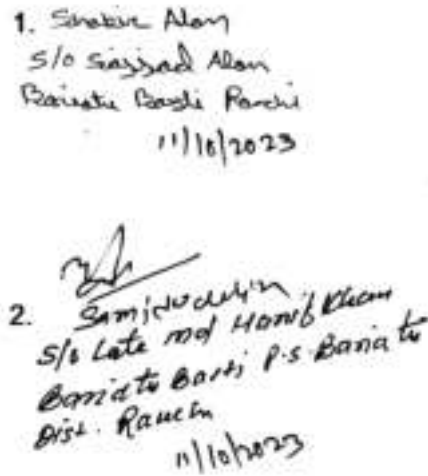 1. Shabir Alam
S/o Sajjad Alam
Bariatu Basti Ranchi
11/10/2023
2. Samiruddin
S/o Late md Hanif Khan
Bariatu Basti P.S. Bariatu
Dist. Ranchi
11/10/2023